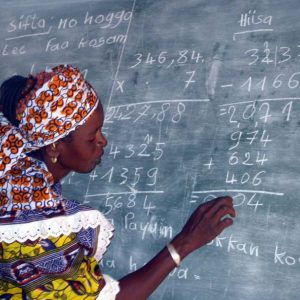 sifta; no hoggo
Lee faa kosam
346,84
x 7
2427,88
4325
+ 1359
5684
Hiisa
323
- 1166
2071
974
+ 624
406
04